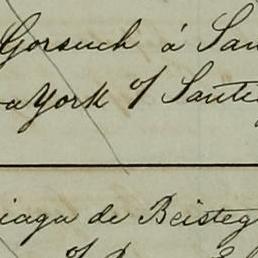 Gorsuch á San
a York % Santi
iaga de Beisteg
%